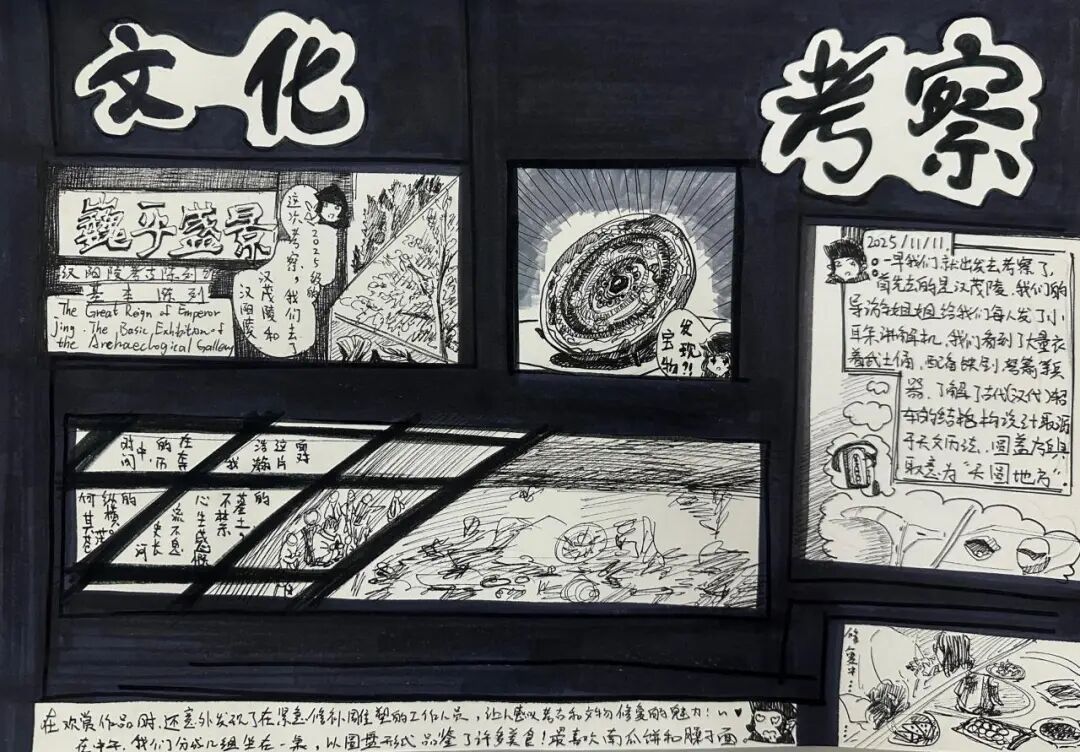 文化
考察
巍乎盛景
汉阳陵考古陈列
基本陈列
The Great Reign of Emperor
Jing: The Basic Exhibition of
the Archaeological Gallery
2025级的
这次考察，我们去
汉茂陵和
汉阳陵
发现?!
宝物
2025/11/11.
一早我们就出发去考察了，
首先去的是汉茂陵。我们的
导游姐姐给我们每人发了小
耳朵讲解机，我们看到了大量衣
着武士俑，配备铁剑、弩箭等兵
器，了解了古代(汉代)
车的结构，构造设计取源
于天文历法，圆盖方
取意为“天圆地方”.
面对
这片
浩瀚
我
在
的
中
时间
的
墓土，
不禁
心生感慨
流不息
河
纵横
何其
修复中...
在欣赏作品时，还意外发现了在紧急修补雕塑的工作人员，让人感叹考古和文物修复的魅力!
在中午，我们分成几组坐在一桌，以圆盘形式品鉴了许多美食!最喜欢南瓜饼和臊子面